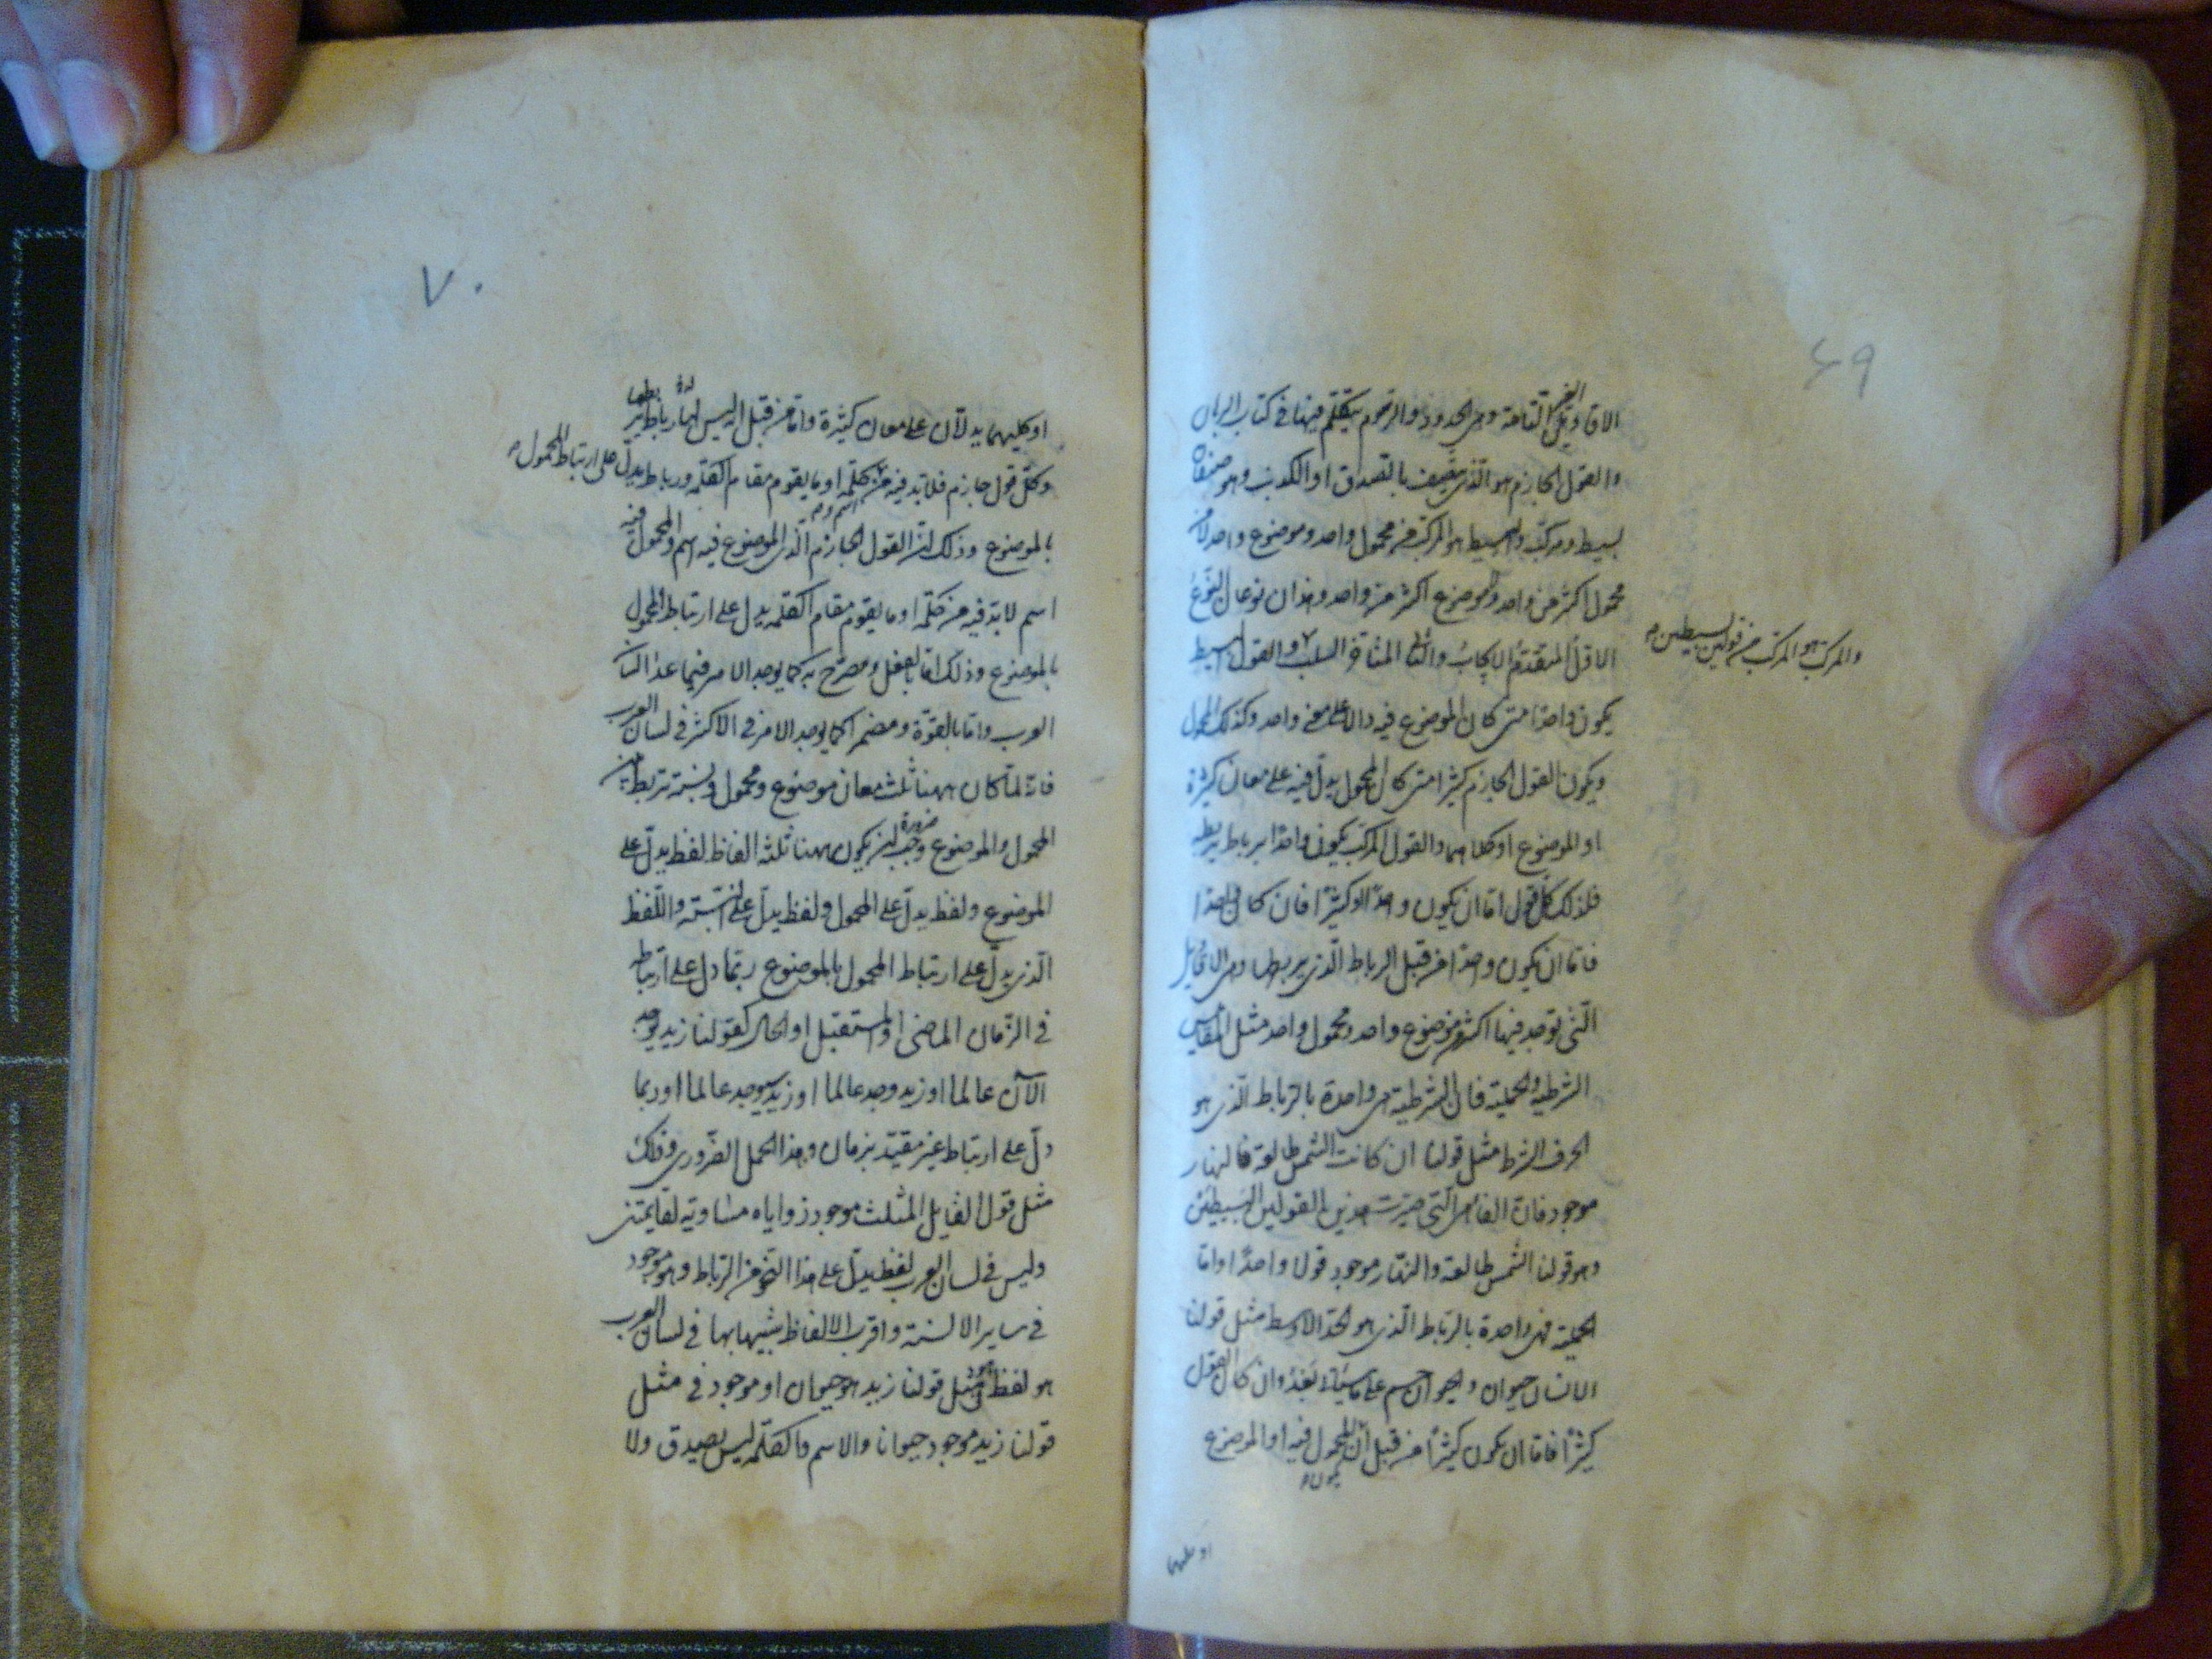 ٦٩
الاقاويل الغير التامة وهى الحدود والرسوم يتكلم فيها فى كتاب البرهان
والقول الجازم هو الذى يتصف بالصدق او الكذب وهو صنفان
بسيط ومركب والبسيط هو المركب من محمول واحد وموضوع واحد لا من
محمول اكثر من واحد وموضوع اكثر من واحد وهذان نوعان النوع
الاول المتقدم الايجاب والثانى المتأخر السلب والقول البسيط
والمركب هو المركب من قولين بسيطين
يكون واحدا متى كان الموضوع فيه دالا على معنى واحد وكذلك المحمول
ويكون القول الجازم كثيرا متى كان المحمول يدل فيه على معان كثيرة
او الموضوع او كلاهما والقول المركب يكون واحدا برباط يربطه
فلذلك كل قول اما ان يكون واحدا او كثيرا فان كان واحدا
فاما ان يكون واحدا من قبل الرباط الذى يربطها وهى الاقاويل
التى توجد فيها اكثر من موضوع واحد ومحمول واحد مثل المقاييس
الشرطية والحملية فان الشرطية هى واحدة بالرباط الذى هو
الحرف الشرط مثل قولنا ان كانت الشمس طالعة فالنهار
موجود فان الفاء هى التى صيرت هذين القولين البسيطين
وهو قولنا الشمس طالعة والنهار موجود قولا واحدا واما
الحملية فهى واحدة بالرباط الذى هو الحد الاوسط مثل قولنا
الانسان حيوان والحيوان جسم على ما سيأتى بعد وان كان القول
كثيرا فاما ان يكون كثيرا من قبل ان المحمول فيه او الموضوع
يكون
او كليهما
٧٠
او كليهما يدلان على معان كثيرة واما من قبل انه ليس لها رباط يربطها
وكل قول جازم فلا بد فيه من كلمة او ما يقوم مقام الكلمة ورباط يدل على ارتباط المحمول
بالموضوع وذلك ان القول الجازم الذى الموضوع فيه اسم والمحمول فيه
اسم لا بد فيه من كلمة او ما يقوم مقام الكلمة يدل على ارتباط المحمول
بالموضوع وذلك اما بالفعل ومصرح به كما يوجد الامر فيما عدا لسان
العرب واما بالقوة ومضمر كما يوجد الامر فى الاكثر فى لسان العرب
فانه لما كان ههنا ثلث معان موضوع ومحمول ونسبة تربط بين
المحمول والموضوع وجب ضرورة ان يكون ههنا ثلثة الفاظ لفظ يدل على
الموضوع ولفظ يدل على المحمول ولفظ يدل على النسبة واللفظ
الذى يدل على ارتباط المحمول بالموضوع ربما دل على ارتباطه
فى الزمان الماضى او المستقبل او الحال كقولنا زيد يوجد
الآن عالما او زيد وجد عالما او زيد سيوجد عالما او ربما
دل على ارتباط غير مقيد بزمان وهذا الحمل الضرورى وذلك
مثل قول القايل المثلث موجود زواياه مساوية لقايمتين
وليس فى لسان العرب لفظ يدل على هذا النحو من الرباط وهو موجود
فى ساير الالسنة واقرب الالفاظ شبها بها فى لسان العرب
هو لفظ هو فى مثل قولنا زيد هو حيوان او موجود فى مثل
قولنا زيد موجود حيوانا والاسم والكلمة ليس يصدق ولا